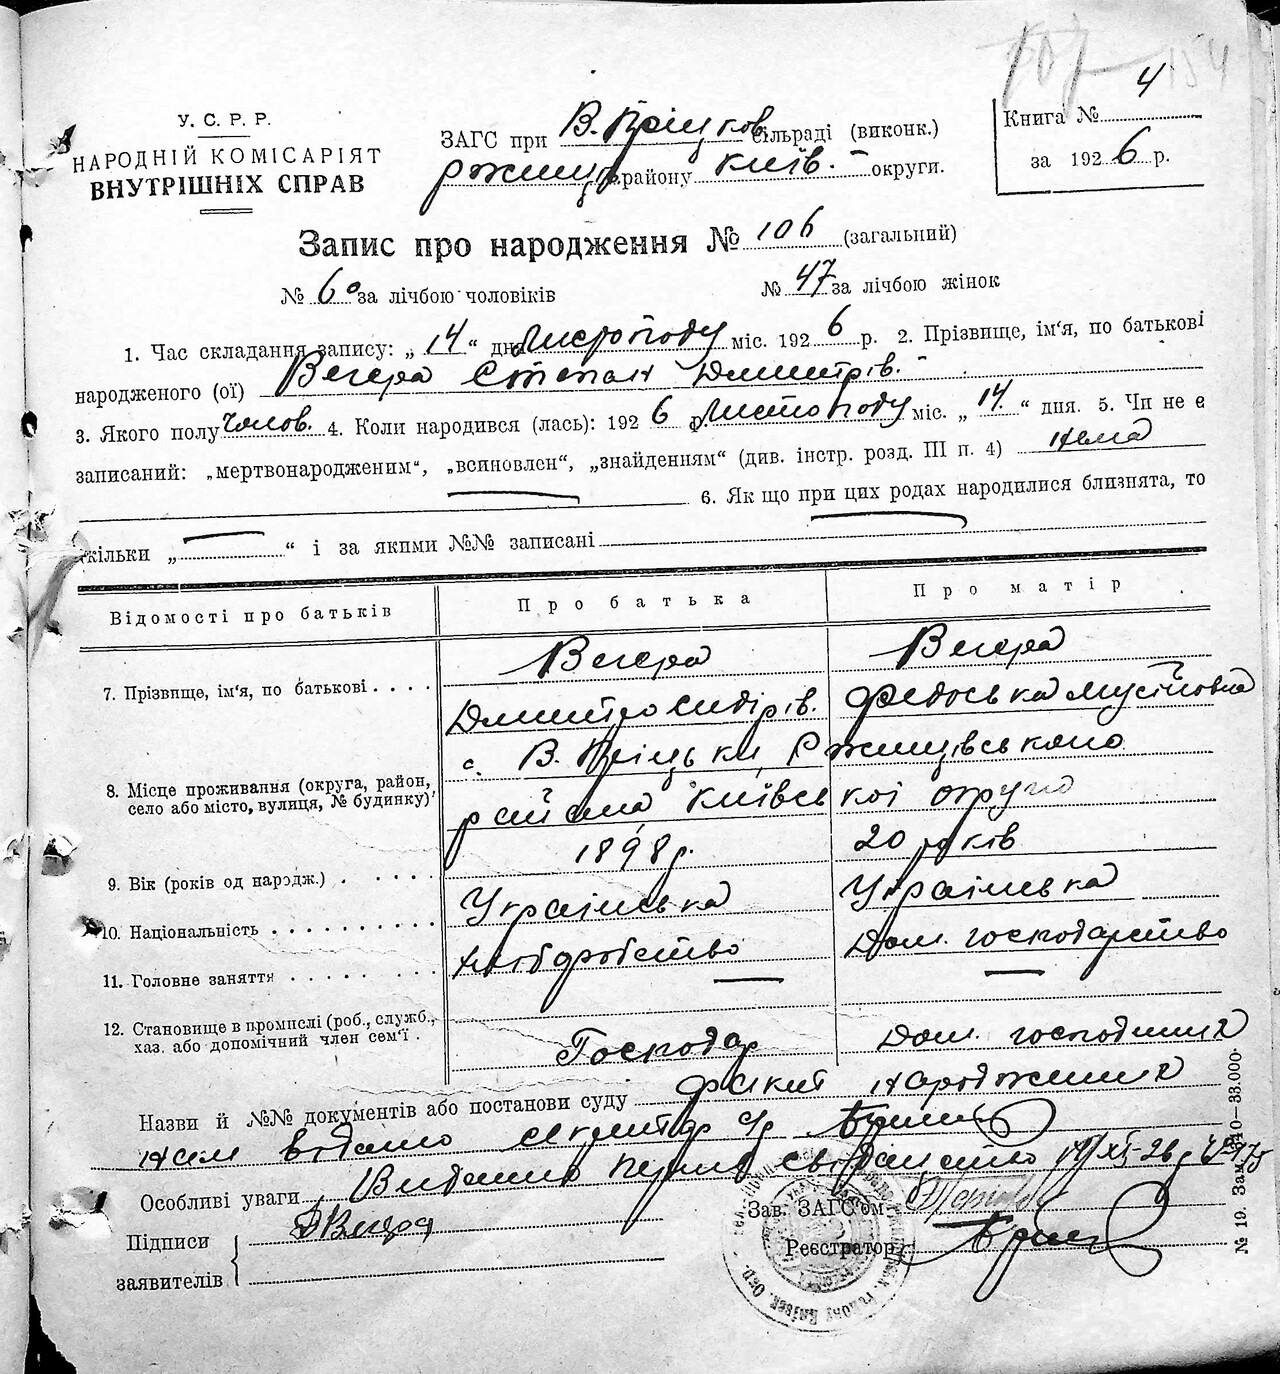 154
У. С. Р. Р.
НАРОДНІЙ КОМІСАРІЯТ
ВНУТРІШНІХ СПРАВ
ЗАГС при В. Пріцков. сільраді (виконк.)
Ржищ. району Київ. округи.
Книга № 4
за 1926 р.
Запис про народження № 106 (загальний)
№ 60 за лічбою чоловіків № 47 за лічбою жінок
1. Час складання запису: „ 14 “ дня Листопаду міс. 1926 р. 2. Прізвище, ім‘я, по батькові
народженого (ої) Вегера Степан Дмитрів.
3. Якого полу Чолов. 4. Коли народився (лась): 1926 р. Листопаду міс. „ 14. “ дня. 5. Чи не є
записаний: „мертвонародженим“, „всиновлен“, „знайденням“ (див. інстр. розд. III п. 4) Нема
6. Як що при цих родах народилися близнята, то
скільки „ — “ і за якими №№ записані
Відомості про батьків Про батька Про матір
7. Прізвище, ім‘я, по батькові . . . . Вегера Вегера
Дмитро Сидірів. Федоська Мусіївна
8. Місце проживання (округа, район, село або місто, вулиця, № будинку) с. В. Пріцьки, Ржищівського
району Київської округи
9. Вік (років од народж.) . . . . . 1898 р. 20 років
10. Національність . . . . . . . . . . Українська Українська
11. Головне заняття . . . . . . . . Хліборобство Дом. господарство
12. Становище в промислі (роб., служб., хаз. або допомічний член сем‘ї . Господар Дом. господиня
Назви й №№ документів або постанови суду факт народження
нам відомо секретар с/р
Особливі уваги Видано перше свідоцтво
Підписи заявителів Д Вегера
Зав. ЗАГС‘ом
Реєстратор
№ 19. Зам. —33.000.